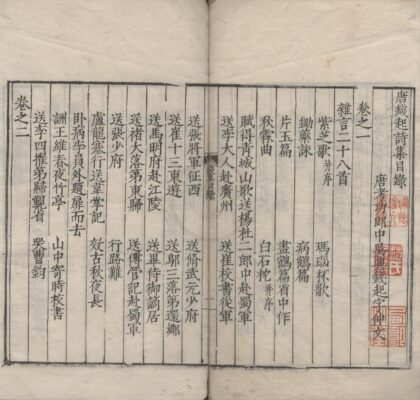 唐錢起詩集目錄
唐考功郎中吳興錢起字仲文
卷之一
雜言二十八首
紫參歌并序 瑪瑙杯歌
鋤藥詠 病鶴篇
片玉篇 畫鶴篇省中作
秋霖曲 白石枕并序
賦得青城山歌送楊杜二郎中赴蜀軍
送李大人赴廣州 送崔校書從軍
送張將軍征西 送脩武元少府
送崔十三東遊 送鄔三落第還鄉
送馬明府赴江陵 送畢侍御謫居
送褚大落第東歸 送傅管記赴蜀軍
送張少府 行路難
盧龍塞行送韋掌記 效古秋夜長
卧病李員外題扉而去
酬王維春夜竹亭 山中寄時校書
送李四擢第歸覲省 哭曹鈞
卷之二